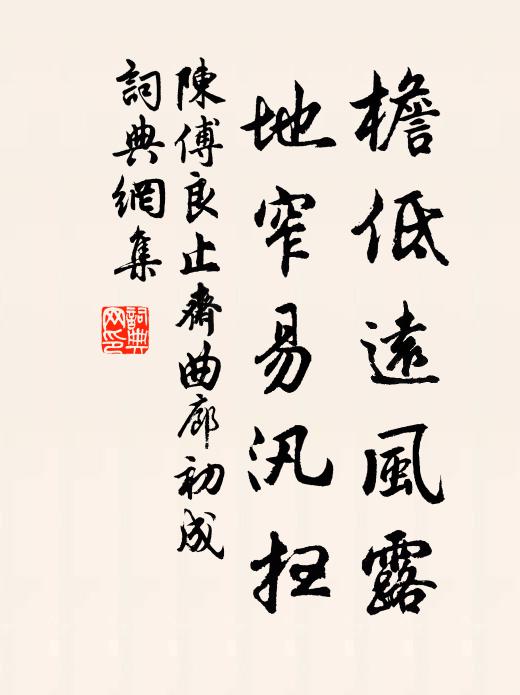 檐低遠風露
地窄易汛扫
陳傅良止齋曲廊初成
詞典網集
詞典
网印